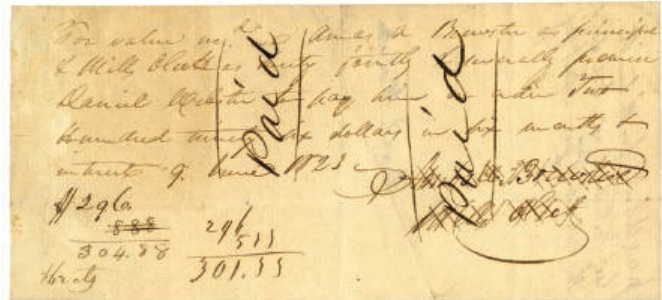 For value rec.d I Amos A Brewster as principal
& Mills Olcott as surety jointly & severally promise
Daniel Webster to pay him or order Two
hundred ninety six dollars in six months &
interest 9. June 1823
Paid
Paid
Mills Olcott
$296
888
304.88
296
5 
301.